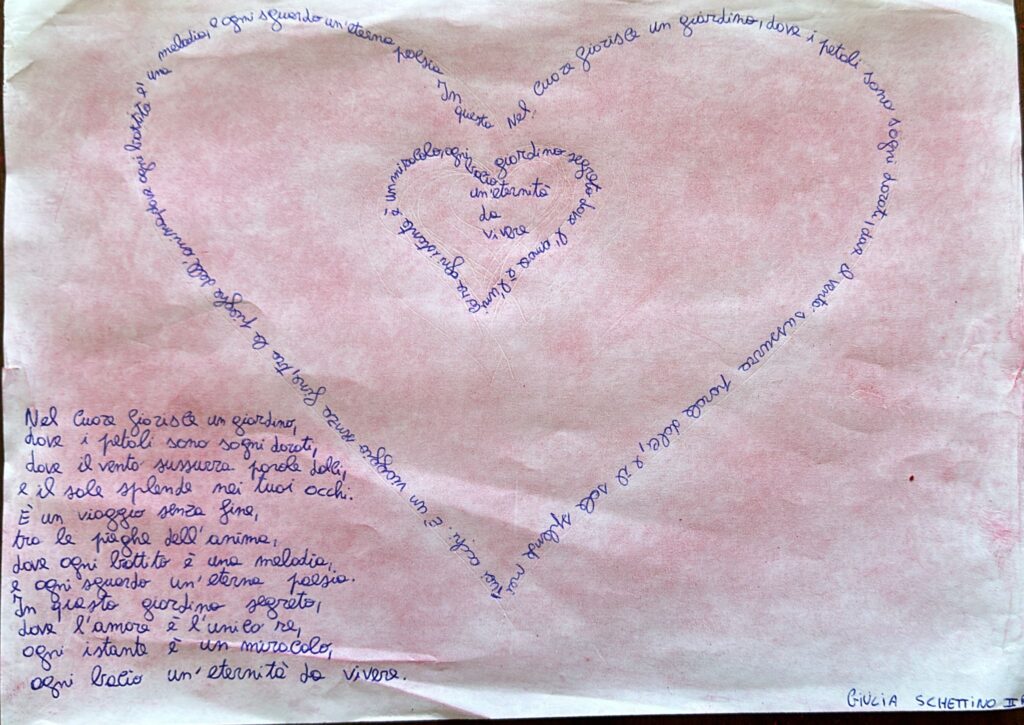 Nel cuore fiorisce un giardino, dove i petali sono sogni dorati, dove il vento sussurra parole dolci, e il sole splende nei tuoi occhi. È un viaggio senza fine, tra le pieghe dell'anima, dove ogni battito è una melodia, e ogni sguardo un'eterna poesia In questo
giardino segreto dove l'amore è l'unico re ogni istante è un miracolo, ogni bacio un'eternità
da
vivere
Nel cuore fiorisce un giardino,
dove i petali sono sogni dorati,
dove il vento sussurra parole dolci,
e il sole splende nei tuoi occhi.
È un viaggio senza fine,
tra le pieghe dell'anima,
dove ogni battito è una melodia,
e ogni sguardo un'eterna poesia.
In questo giardino segreto,
dove l'amore è l'unico re,
ogni istante è un miracolo,
ogni bacio un'eternità da vivere.
GIULIA SCHETTINO II